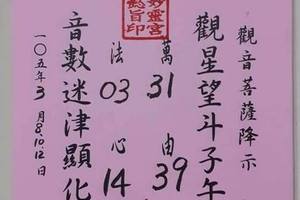 觀音菩薩降示
觀星望斗子午
妙靈宮
旨印
萬 31 由 39
法 03 心 14
音數迷津顯化
一〇五年3月8.10.12日